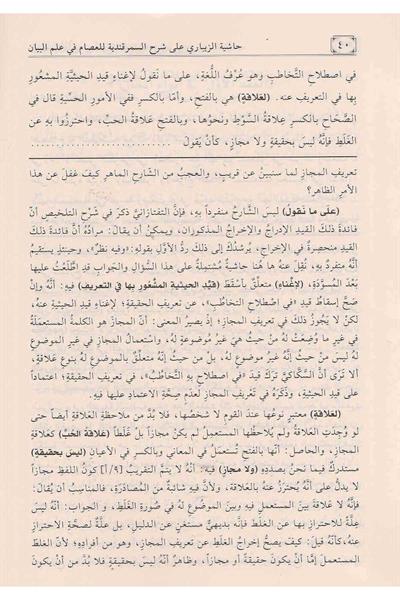 ٤٠ حاشية الزيباري على شرح السمرقندية للعصام في علم البيان
في اصطلاح التَّخاطُبِ وهو عُرْفُ اللُّغَةِ، على ما نَقُولُ لإغناءِ قيدِ الحيثيَّةِ المشعُورِ
بِها في التعريف عنه. (لعَلاقةٍ) هي بالفتح، وأمّا بالكسرِ ففي الأمورِ الحسِّيَّةِ قال في
الصِّحَاح بالكسرِ عِلاقةُ السَّوْطِ ونحوُها، وبالفتح عَلاقةُ الحبِّ، واحترزُوا بِهِ عن
الغَلَطِ فإنَّهُ ليسَ بحقيقةٍ ولا مجازٍ، كأنْ يقولَ
تعريفِ المجازِ لما سنبينُ عن قريبٍ، والعجبُ من الشَّارحِ الماهرِ كيفَ غفل عن هذا
الأمرِ الظاهر؟
(على ما نَقولُ) ليسَ الشَّارحُ منفرداً بهِ، فإنَّ التفتازانيَّ ذكرَ في شَرْحِ التلخيصِ أنَّ
فائدةَ ذلكَ القيدِ الإدراجُ والإخراجُ المذكورَانِ، ويمكنُ أن يقالَ: مرادُهُ أنَّ فائدةَ ذلكَ
القيدِ منحصرةٌ في الإخراجِ، يُرشدُكَ إلى ذلك ردُّ الأوَّلِ بقولهِ: «وفيه نظرٌ»، وحينئذٍ يستقيمُ
أنَّهُ متفردٌ بهِ، نُقِلَ عنهُ ها هُنا حاشيةٌ مُشتمِلةٌ على هذا السُّؤالِ والجوابِ قدِ اطَّلعْتُ عليها
بَعْدَ المُسوَّدَةِ، (لإغناءِ) متعلِّقٌ بأسْقَطَ (قَيْدِ الحيثيةِ المشْعُورِ بها في التعريفِ) فيه: أنَّهُ وإنْ
صَحَّ إسقاطُ قيدِ «في اصطلاحِ التخاطُبِ»، عن تعريفِ الحقيقةِ؛ لإغناءِ قيدِ الحيثيةِ عنهُ،
لكنْ لا يَجُوزُ ذلكَ في تعريفِ المجازِ؛ إذْ يصيرُ المعنى: أنَّ المجازَ هو الكلمةُ المستعملَةُ
في غيرِ ما وُضِعَتْ لهُ منْ حيثُ هيَ غيرُ موضوعةٍ لهُ، واستعمالُ المجازِ في غيرِ الموضوعِ
لهُ ليسَ منْ حيثُ إنَّهُ غيرُ موضوعٍ لهُ، بلْ منْ حيثُ إنَّهُ متعلِّقٌ بالموضوعِ لهُ بنوعِ عَلاقةٍ،
ألا تَرَى أنَّ السَّكاكيَّ تركَ قيدَ «في اصطلاحٍ بهِ التَّخَاطُبُ»، في تعريفِ الحقيقةِ؛ اعتماداً
على قيدِ الحيثيةِ، وذكَرَهُ في تَعْريفِ المجازِ لعدمِ صِحَّةِ الاعتمادِ عليها فيهِ.
(لعَلاقةٍ) معتبرٍ نوعُها عندَ القومِ لا شخصُها، فلا بُدَّ من ملاحظةِ العَلاقةِ أيضاً حتى
لو وُجِدَتِ العَلاقةُ ولمْ يلاحظْها المستعملُ لم يكنْ مجازاً بلْ غَلَطاً (عَلاقةُ الحُبِّ) كعَلاقةِ
المجازِ، والحاصلُ: أنَّها بالفتحِ تُستعملُ في المعاني وبالكسرِ في الأعيانِ (ليسَ بحقيقةٍ)
مستدركٌ فيما نحنُ بصددِهِ (ولا مجازٍ) فيه: أنَّهُ لا يَتِمُّ التقريبُ [٩/أ] كونُ اللفظِ مجازاً
لا يدلُّ على أنَّهُ يُحترزُ عنهُ بالعَلاقةِ، ولأنَّ فيهِ شائبةً منَ المُصادَرَةِ، فالمناسبُ أن يُقالَ:
فإنَّهُ لا عَلاقةَ بينَ المستعملِ فيهِ وبينَ الموضُوعِ لهُ في صُورةِ الغَلَطِ، و الجوابُ: أنَّهُ ليسَ
عِلَّةً للاحترازِ بها عن الغَلَطِ فإنَّه بديهيٌّ مستغنٍ عن الدليلِ، بل علَّةٌ لصحَّةِ الاحترازِ
عنهُ،كأنَّهُ قيلَ: كيفَ يصحُّ إخراجُ الغَلَطِ عن تعريفِ المجازِ، وهو من أفرادِهِ؛ لأنَّ الغَلَطَ
المستعملَ إمَّا أن يكونَ حقيقةً أو مجازاً، وظاهرٌ أنَّهُ ليسَ بحقيقةٍ فلا بُدَّ من أن يكونَ